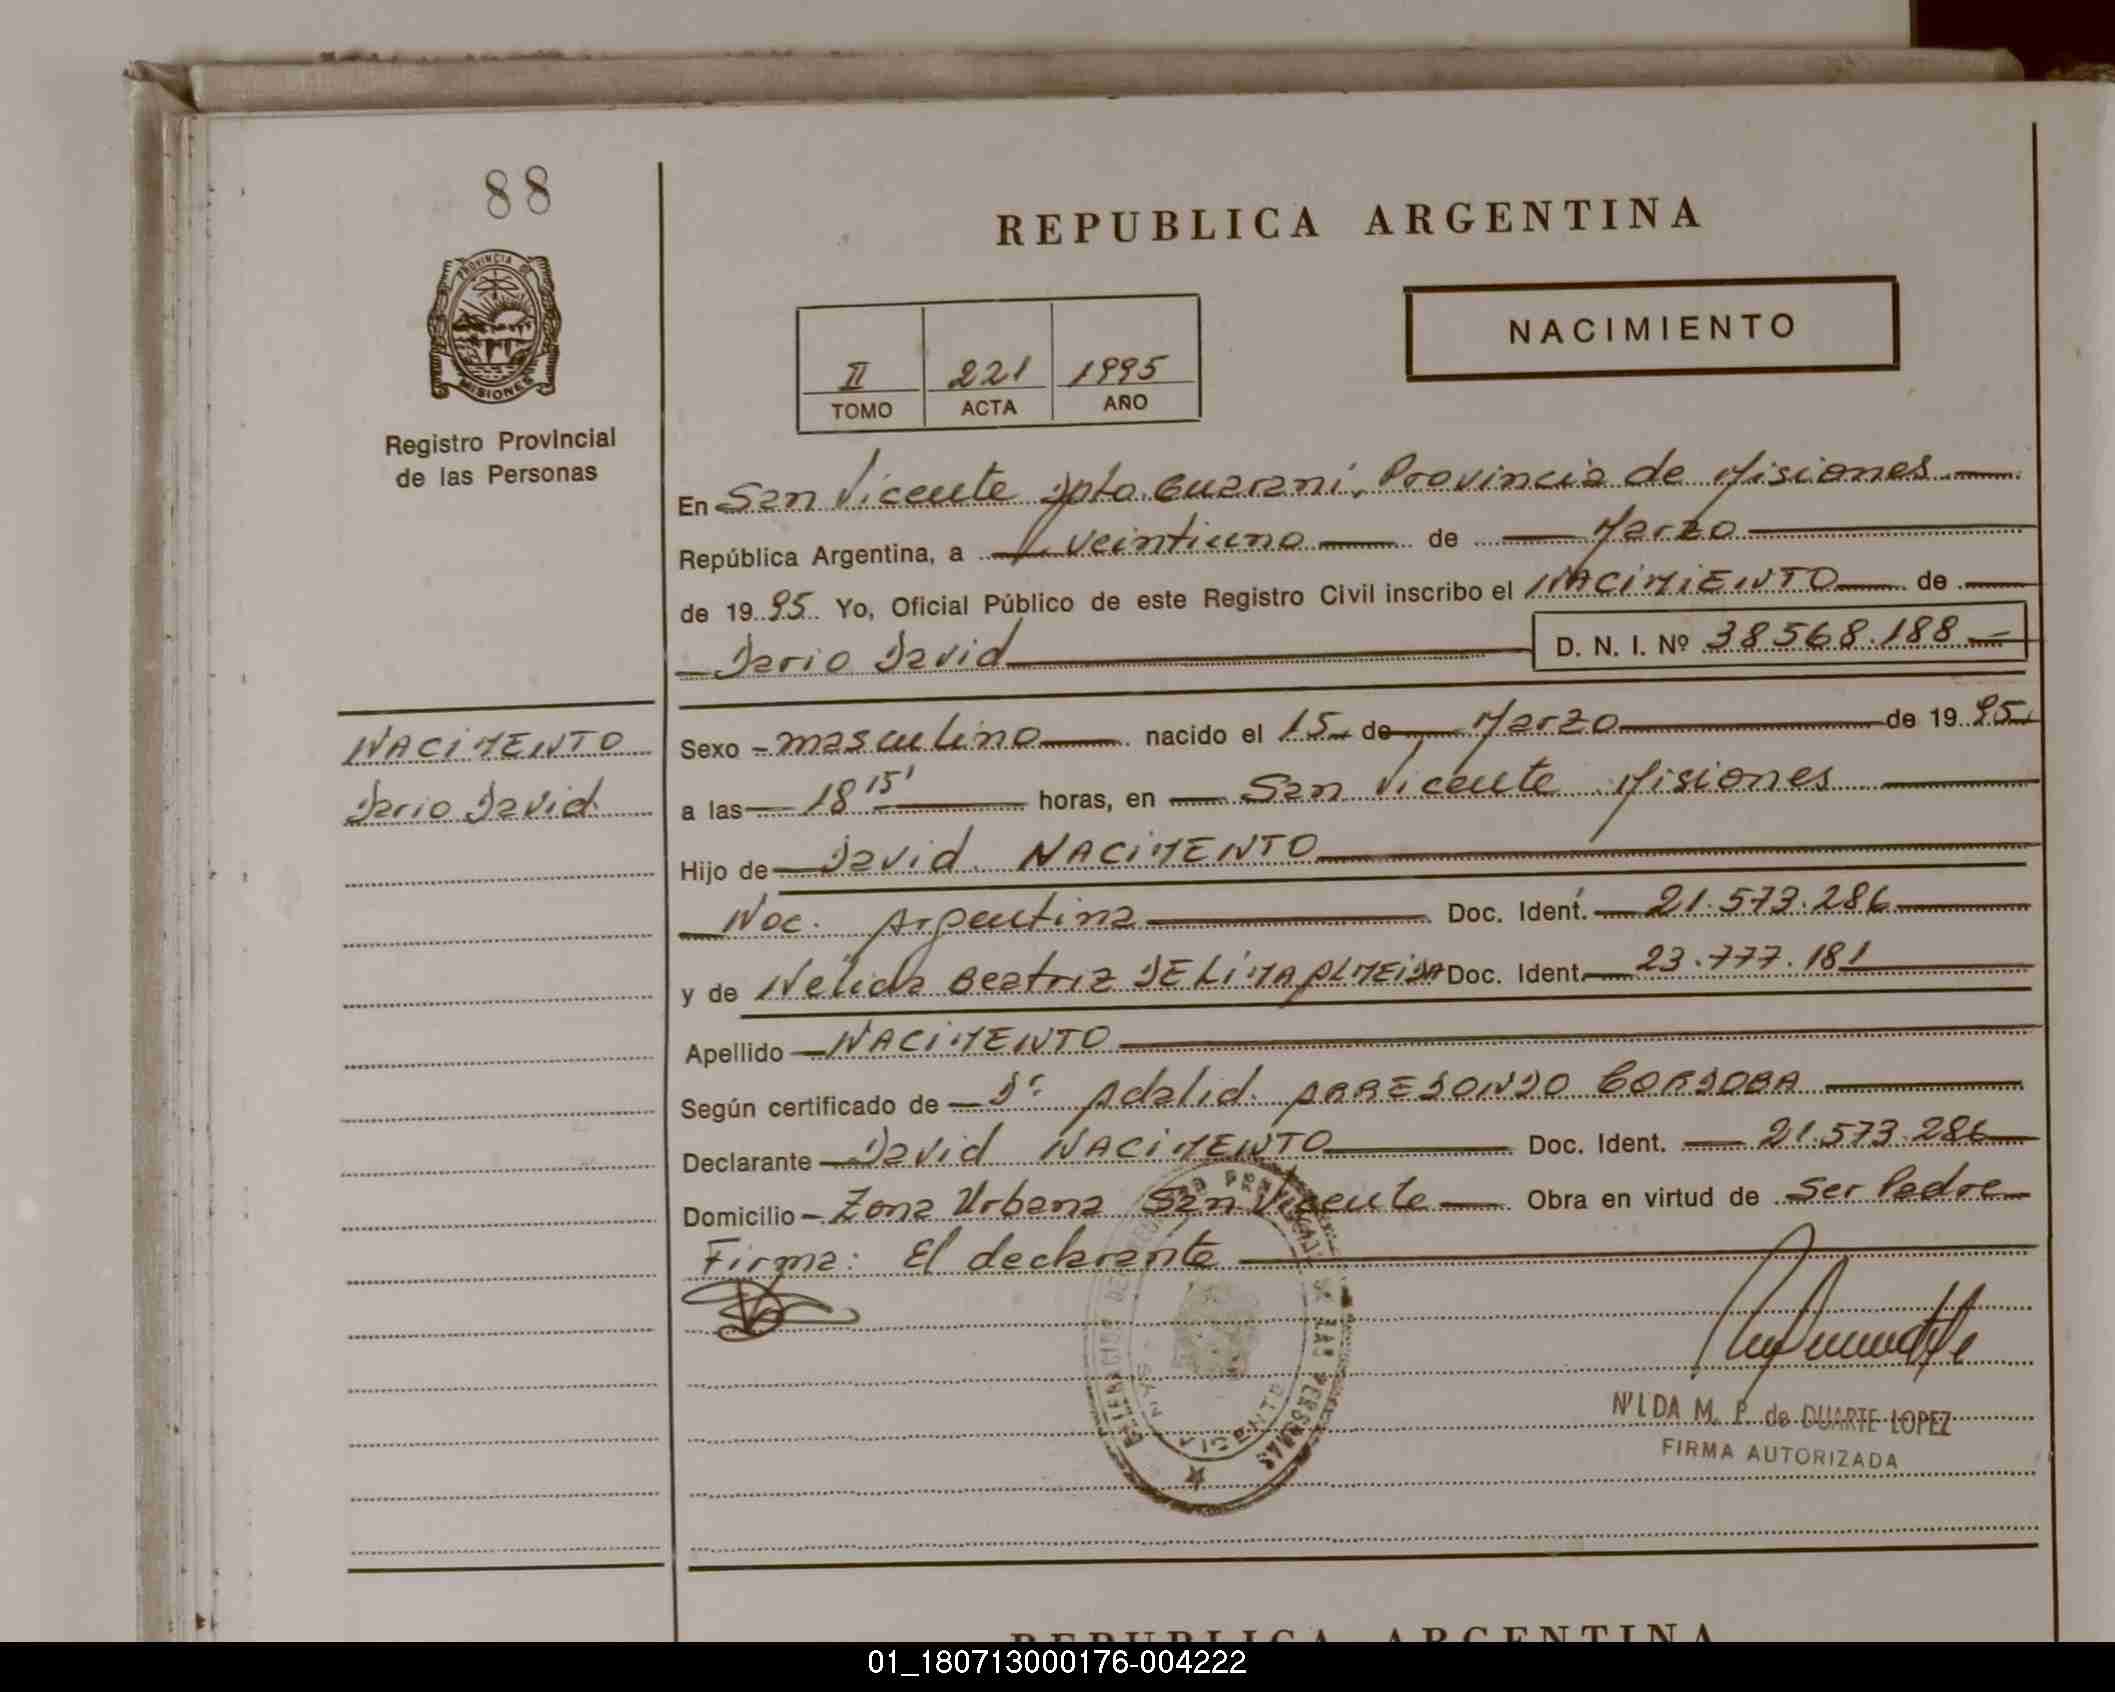 88
REPUBLICA ARGENTINA
PROVINCIA DE
MISIONES
Registro Provincial
de las Personas
II 221 1995
TOMO ACTA AÑO
NACIMIENTO
En San Vicente Dpto. Guarani, Provincia de Misiones
República Argentina, a veintiuno de Marzo
de 1995 Yo, Oficial Público de este Registro Civil inscribo el NACIMIENTO de
Dario David D. N. I. Nº 38568.188
NACIMENTO
Dario David
Sexo masculino nacido el 15 de Marzo de 1995
a las 18 15' horas, en San Vicente Misiones
Hijo de David NACIMENTO
Nac. Argentina Doc. Ident. 21.573.286
y de Nelida Beatriz DE LIMA ALMEIDA Doc. Ident. 23.777.181
Apellido NACIMENTO
Según certificado de Dr. Adalid ARREDONDO CORDOBA
Declarante David NACIMENTO Doc. Ident. 21.573.286
Domicilio Zona Urbana San Vicente Obra en virtud de ser Padre
Firma: El declarante
DE LAS PERSONAS
SAN VICENTE
NILDA M. P. de DUARTE LOPEZ
FIRMA AUTORIZADA
REPUBLICA ARGENTINA
01_180713000176-004222